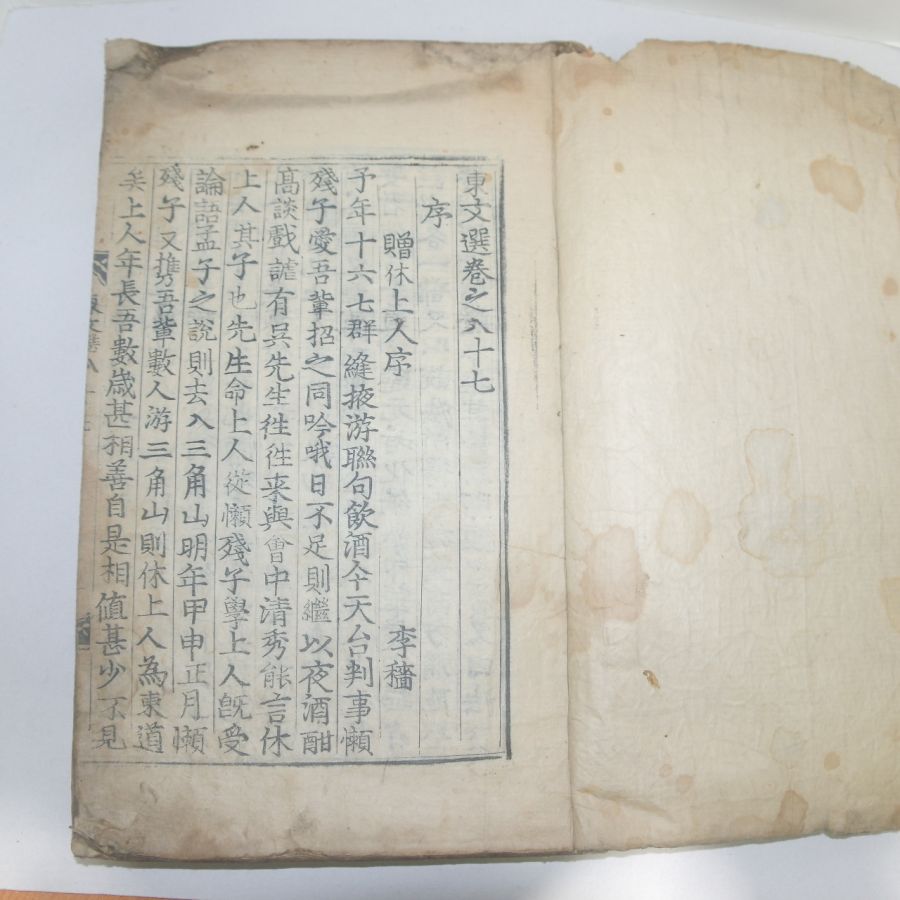 東文選卷之八十七
序
贈休上人序 李穡
予年十六七群縫掖游聯句飲酒今天台判事懶
殘子愛吾輩招之同吟哦日不足則繼以夜酒酣
高談戲謔有吳先生徃徃来與會中清秀能言休
上人其子也先生命上人從懶殘子學上人旣受
論語孟子之說則去入三角山明年甲申正月懶
殘子又携吾輩數人游三角山則休上人為東道
矣上人年長吾數歲甚相善自是相値甚少不見
東文選八十七